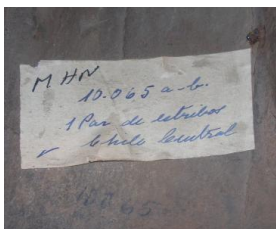 M HN
10.065 a-b.
1 Par de estribos
✓ Chile Central
10065